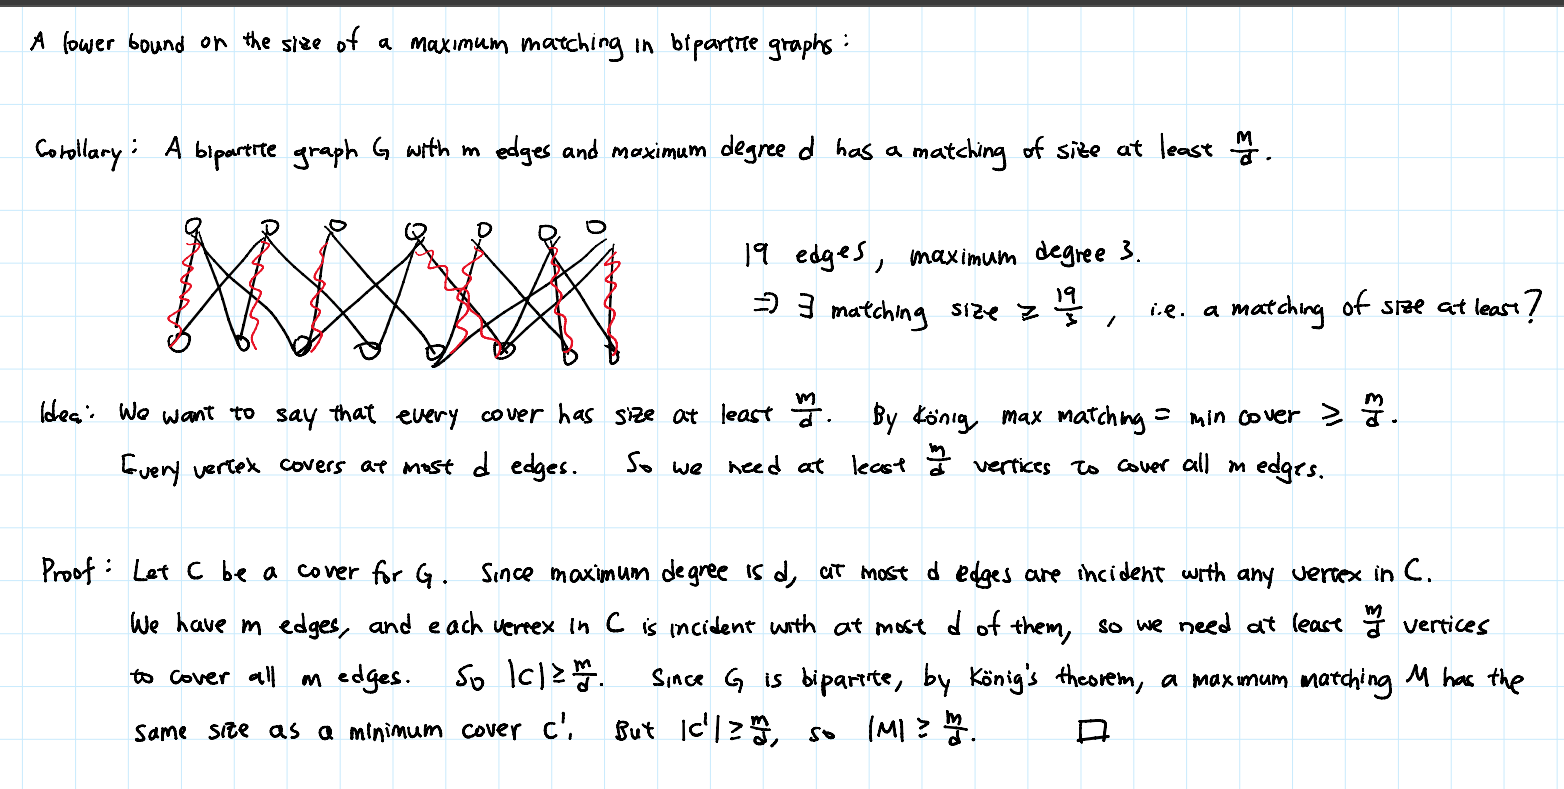 A lower bound on the size of a maximum matching in bipartite graphs:
Corollary: A bipartite graph G with m edges and maximum degree d has a matching of size at least m/d.
19 edges, maximum degree 3.
⇒ ∃ matching size ≥ 19/3, i.e. a matching of size at least?
Idea: We want to say that every cover has size at least m/d. By König, max matching = min cover ≥ m/d.
Every vertex covers at most d edges. So we need at least m/d vertices to cover all m edges.
Proof: Let C be a cover for G. Since maximum degree is d, at most d edges are incident with any vertex in C.
We have m edges, and each vertex in C is incident with at most d of them, so we need at least m/d vertices
to cover all m edges. So |C| ≥ m/d. Since G is bipartite, by König's theorem, a maximum matching M has the
same size as a minimum cover C'. But |C'| ≥ m/d, so |M| ≥ m/d. □